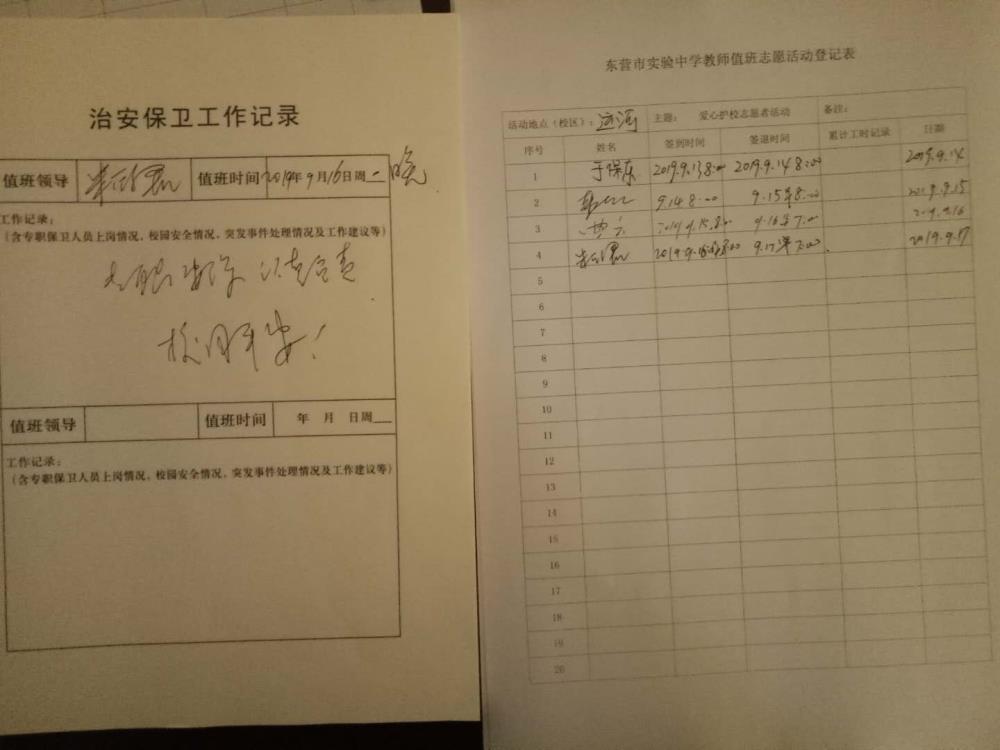 治安保卫工作记录
值班领导 值班时间 2019年9月16日周一 晚
工作记录:
(含专职保卫人员上岗情况、校园安全情况、突发事件处理情况及工作建议等)
校园平安!
值班领导 值班时间 年 月 日周
工作记录:
(含专职保卫人员上岗情况、校园安全情况、突发事件处理情况及工作建议等)
东营市实验中学教师值班志愿活动登记表
活动地点(校区): 运河 主题: 爱心护校志愿者活动 备注:
序号 姓名 签到时间 签退时间 累计工时记录 日期
1 于保东 2019.9.13 8:00 2019.9.14 8:00 2019.9.14
2 9.14 8:00 9.15 8:00 2019.9.15
3 2019.9.15 8:00 9.16 7:00 2019.9.16
4 9.17 7:00 2019.9.17
5
6
7
8
9
10
11
12
13
14
15
16
17
18
19
20